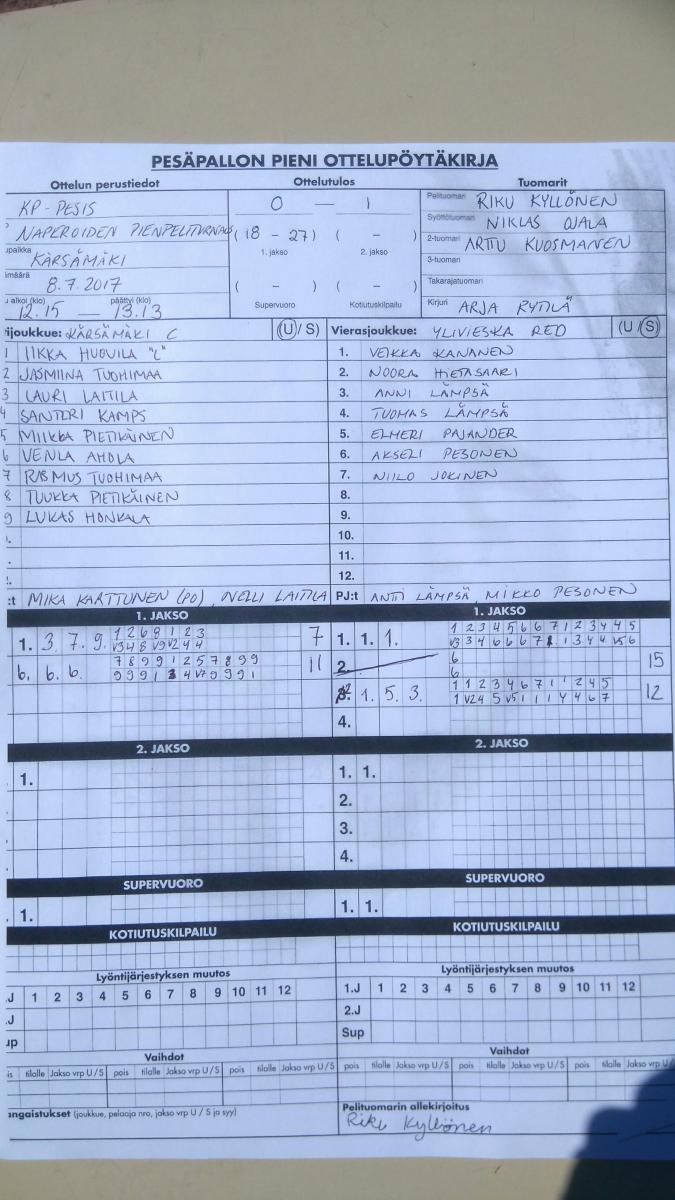 PESÄPALLON PIENI OTTELUPÖYTÄKIRJA
Ottelun perustiedot Ottelutulos Tuomarit
KP-PESIS 0 — 1 Pelituomari RIKU KYLLÖNEN
NAPEROIDEN PIENPELITURNAUS (18 - 27) ( - ) Syöttötuomari NIKLAS OJALA
1. jakso 2. jakso 2-tuomari ARTTU KUOSMANEN
KÄRSÄMÄKI 3-tuomari
8.7.2017 ( - ) ( - ) Takarajatuomari
alkoi (klo) päättyi (klo) Supervuoro Kotiutuskilpailu
12.15 — 13.13 Kirjuri ARJA RYTILÄ
rijoukkue: KÄRSÄMÄKI C (U / S) Vierasjoukkue: YLIVIESKA RED (U / S)
1 IIKKA HUOVILA "L" 1. VEIKKA KANANEN
2 JASMIINA TUOHIMAA 2. NOORA HIETASAARI
3 LAURI LAITILA 3. ANNI LÄMPSÄ
4 SANTERI KAMPS 4. TUOMAS LÄMPSÄ
5 MIIKKA PIETIKÄINEN 5. ELMERI PAJANDER
6 VENLA AHOLA 6. AKSELI PESONEN
7 RASMUS TUOHIMAA 7. NIILO JOKINEN
8 TUUKKA PIETIKÄINEN 8.
9 LUKAS HONKALA 9.
10.
11.
12.
:t MIKA KARTTUNEN (PO), NELLI LAITILA PJ:t ANTTI LÄMPSÄ, MIKKO PESONEN
1. JAKSO 1. JAKSO
1. 3. 7. 9. 1 2 6 8 1 2 3 7 1. 1. 1. 1 2 3 4 5 6 6 7 1 2 3 4 4 5
V3 4 8 V9 V2 4 4 V3 3 4 6 6 6 7 1 1 3 4 4 V5 6
6. 6. 6. 7 8 9 9 1 2 5 7 8 9 9 11 2. 6 15
9 9 9 1 3 4 V7 9 9 9 1 6
1. 5. 3. 1 1 2 3 4 6 7 1 1 2 4 5 12
1 V2 4 5 V5 1 1 1 4 4 6 7
4.
2. JAKSO 2. JAKSO
1. 1. 1.
2.
3.
4.
SUPERVUORO SUPERVUORO
1. 1. 1.
KOTIUTUSKILPAILU KOTIUTUSKILPAILU
Lyöntijärjestyksen muutos Lyöntijärjestyksen muutos
.J 1 2 3 4 5 6 7 8 9 10 11 12 1.J 1 2 3 4 5 6 7 8 9 10 11 12
.J 2.J
up Sup
Vaihdot Vaihdot
is tilalle Jakso vrp U / S pois tilalle Jakso vrp U / S pois tilalle Jakso vrp U / S pois tilalle Jakso vrp U / S pois tilalle Jakso vrp U / S pois tilalle Jakso vrp U
angaistukset (joukkue, pelaaja nro, jakso vrp U / S ja syy) Pelituomarin allekirjoitus
Riku Kyllönen